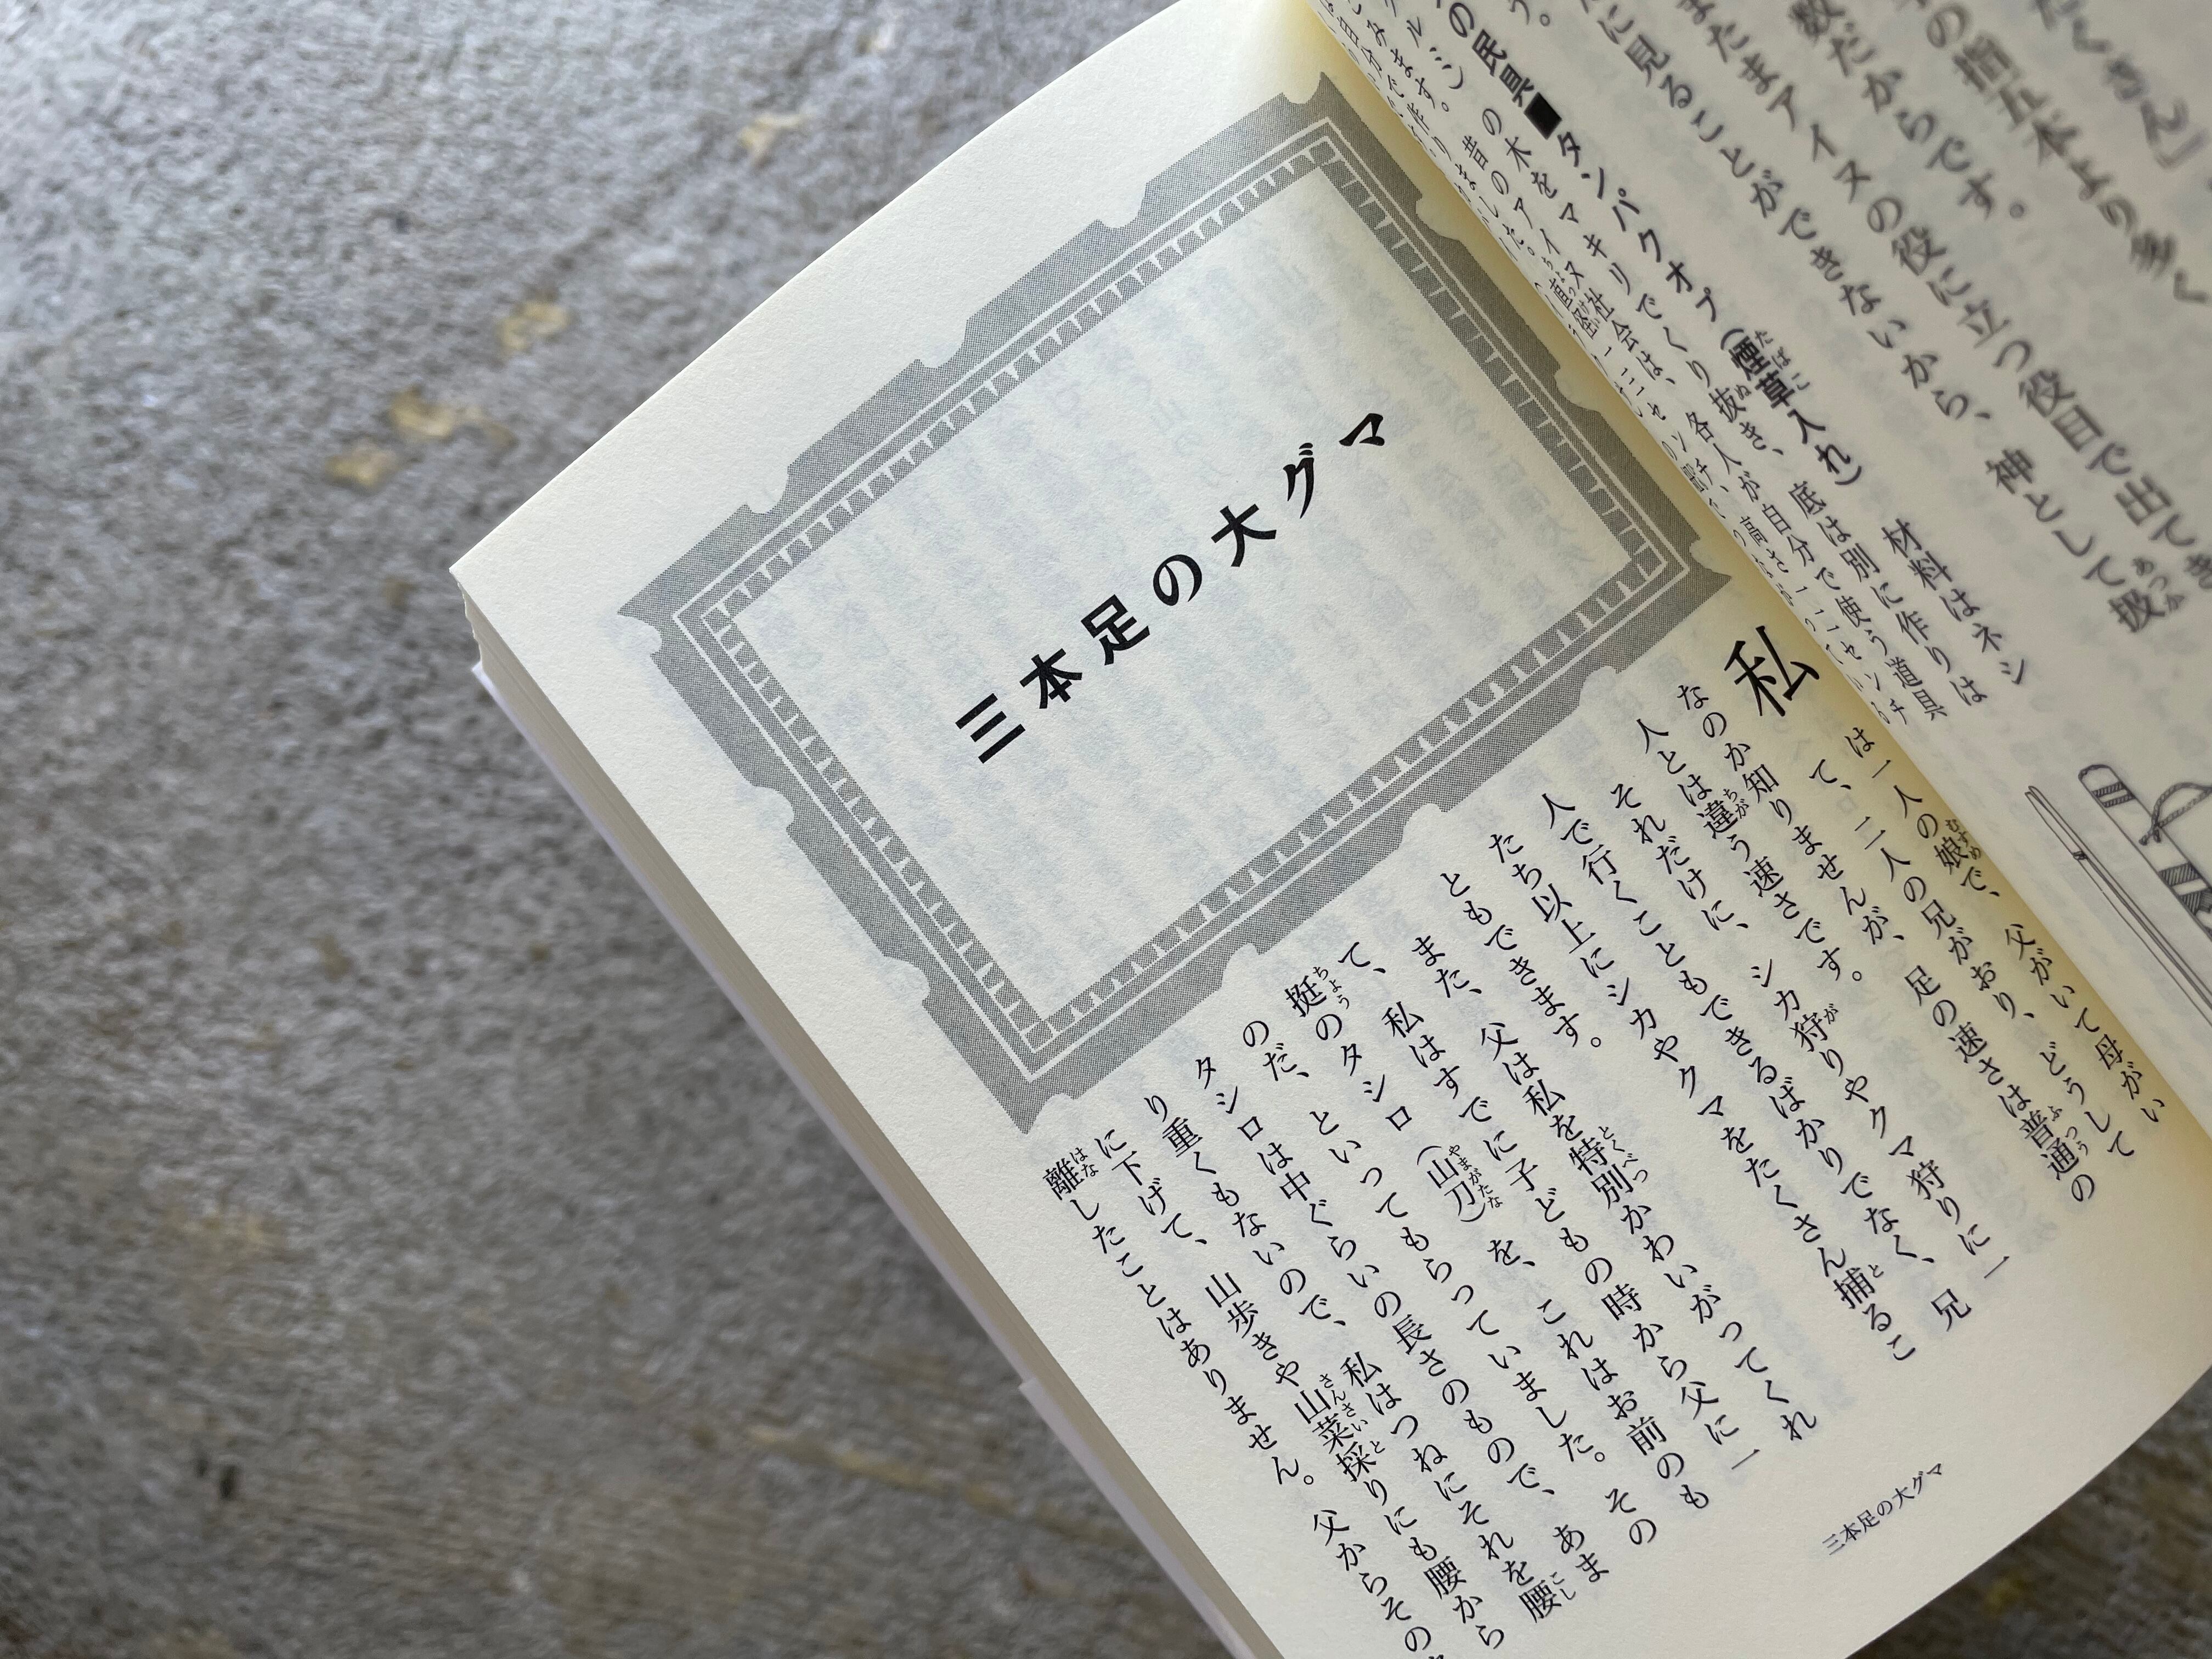 たくさん」
の指五本より多く
数だからです。
またまアイヌの役に立つ役目で出てき
に見ることができないから、神として扱
う。
の民具■タンパクオプ（煙草入れ）　材料はネシ
の木をマキリでくり抜き、底は別に作りは
昔のアイヌ社会は、各人が自分で使う道具
三本足の大グマ
私は一人の娘で、父がいて母がい
て、二人の兄がおり、どうして
なのか知りませんが、足の速さは普通の
人とは違う速さです。
それだけに、シカ狩りやクマ狩りに一
人で行くこともできるばかりでなく、兄
たち以上にシカやクマをたくさん捕るこ
ともできます。
また、父は私を特別かわいがってくれ
て、私はすでに子どもの時から父に一
挺のタシロ（山刀）を、これはお前のも
のだ、といってもらっていました。その
タシロは中ぐらいの長さのもので、あま
り重くもないので、私はつねにそれを腰
に下げて、山歩きや山菜採りにも腰から
離したことはありません。父からその
三本足の大グマ